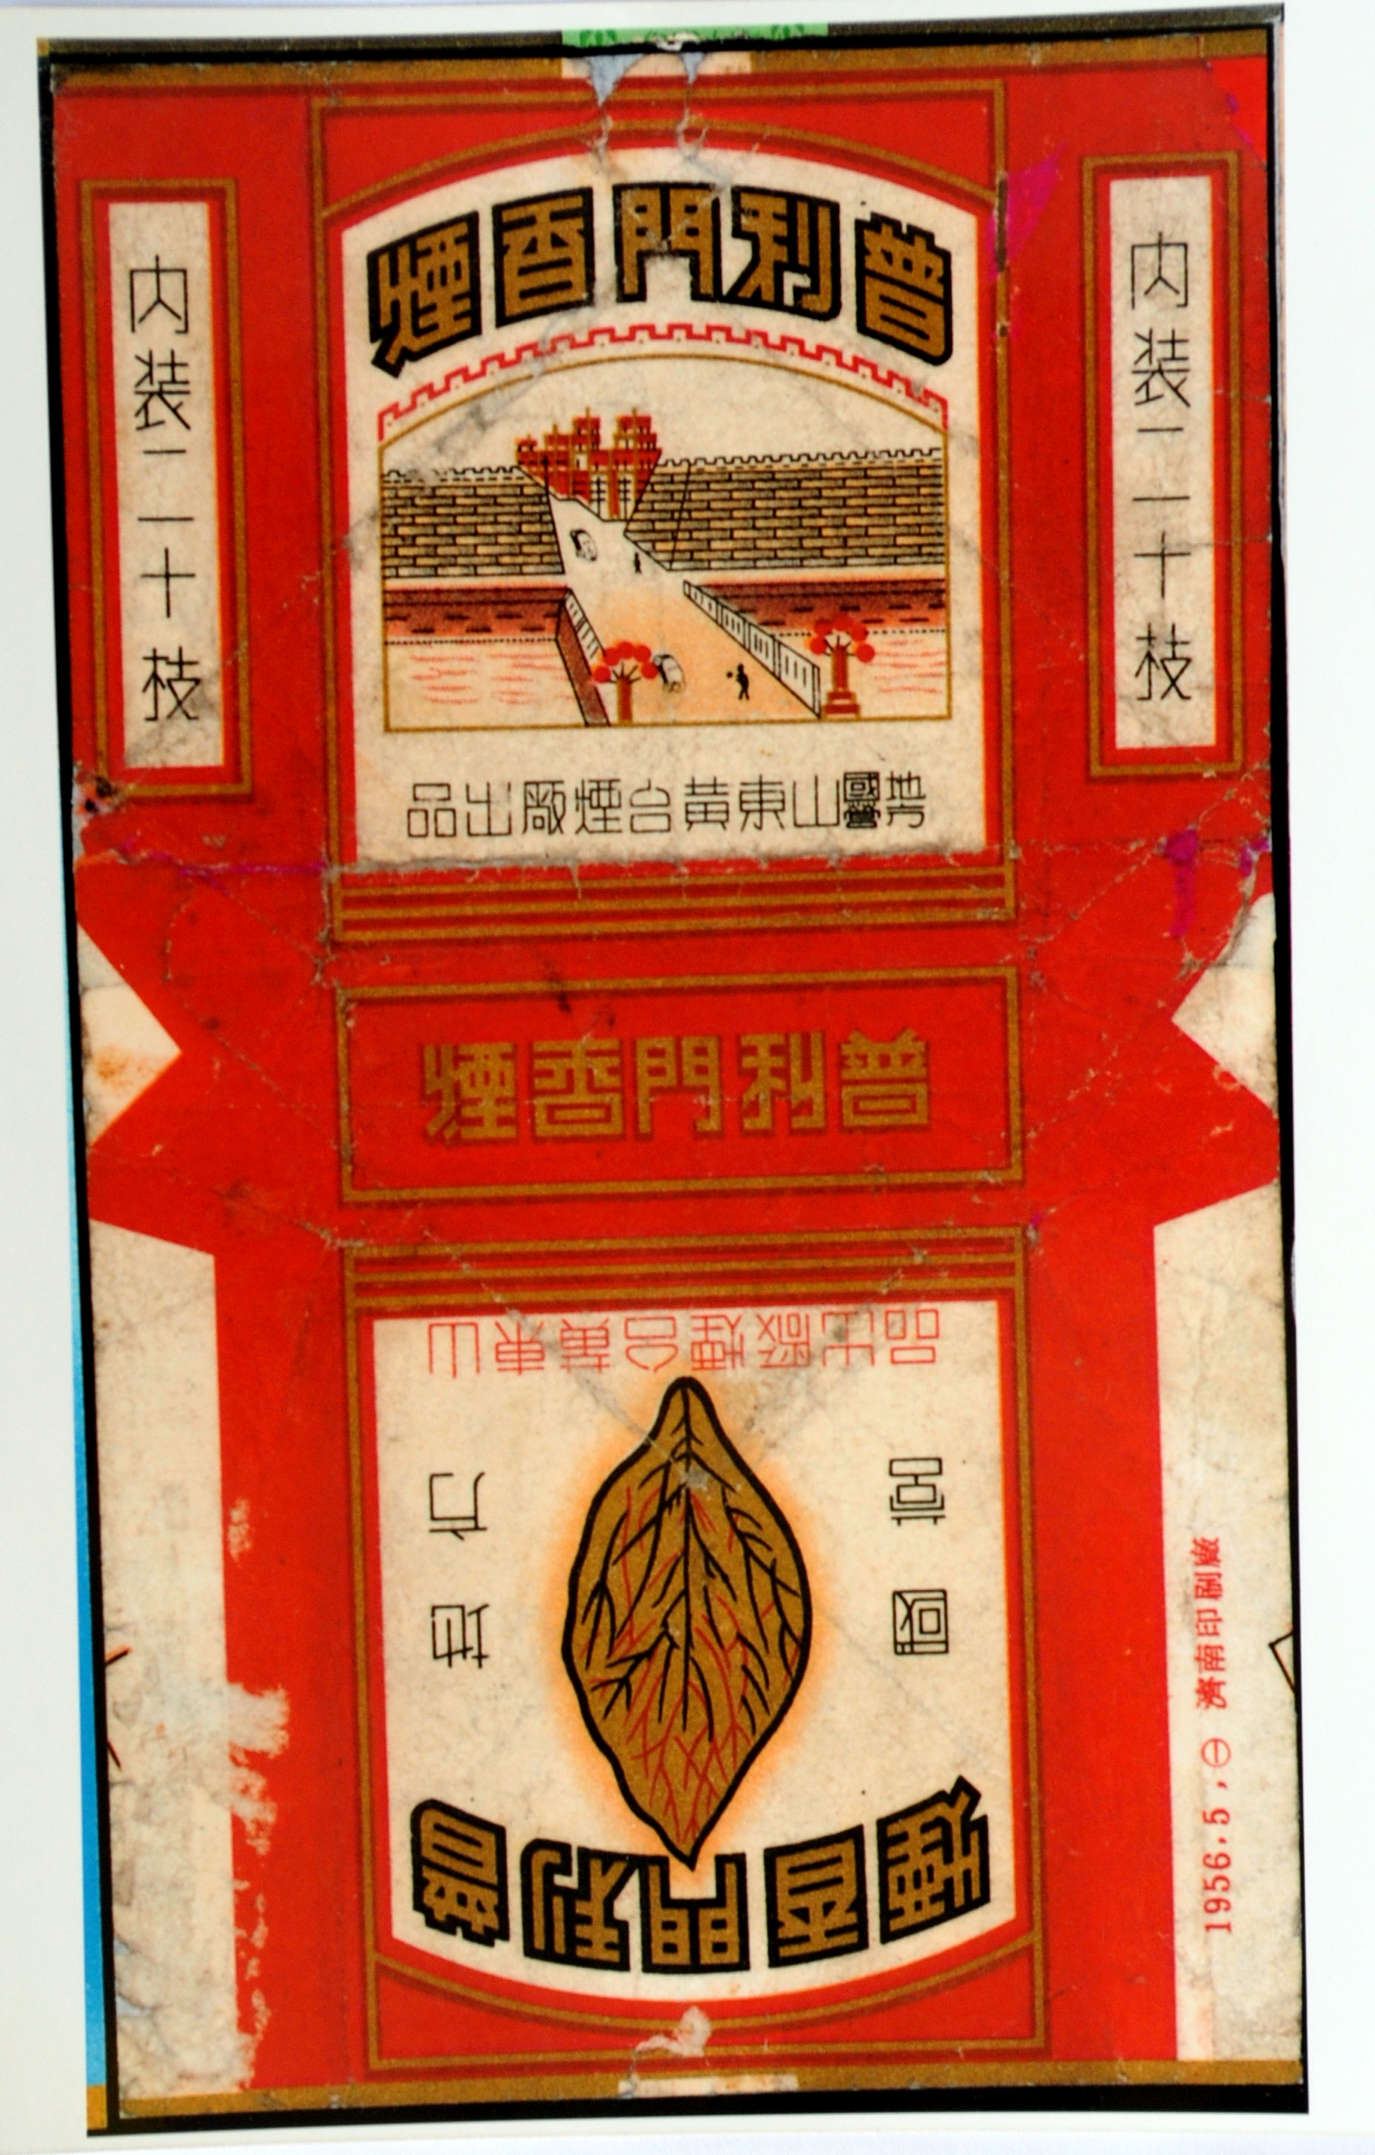 普利門香煙
內装二十枝
內装二十枝
地方國營山東黃台煙厰出品
普利門香煙
山東黃台煙厰出品
地方
國营
普利門香煙
1956.5,㊀ 濟南印刷廠